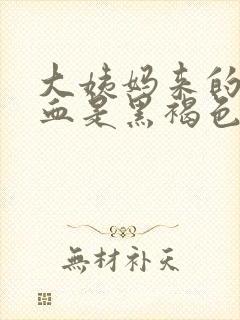 大姨妈来的
血是黑褐色
無材补天